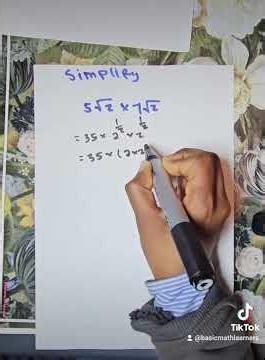 Simplify
5√2 × 7√2
= 35 × 2^½ × 2^½
= 35 × (2 × 2
TikTok
@basicmathlearners